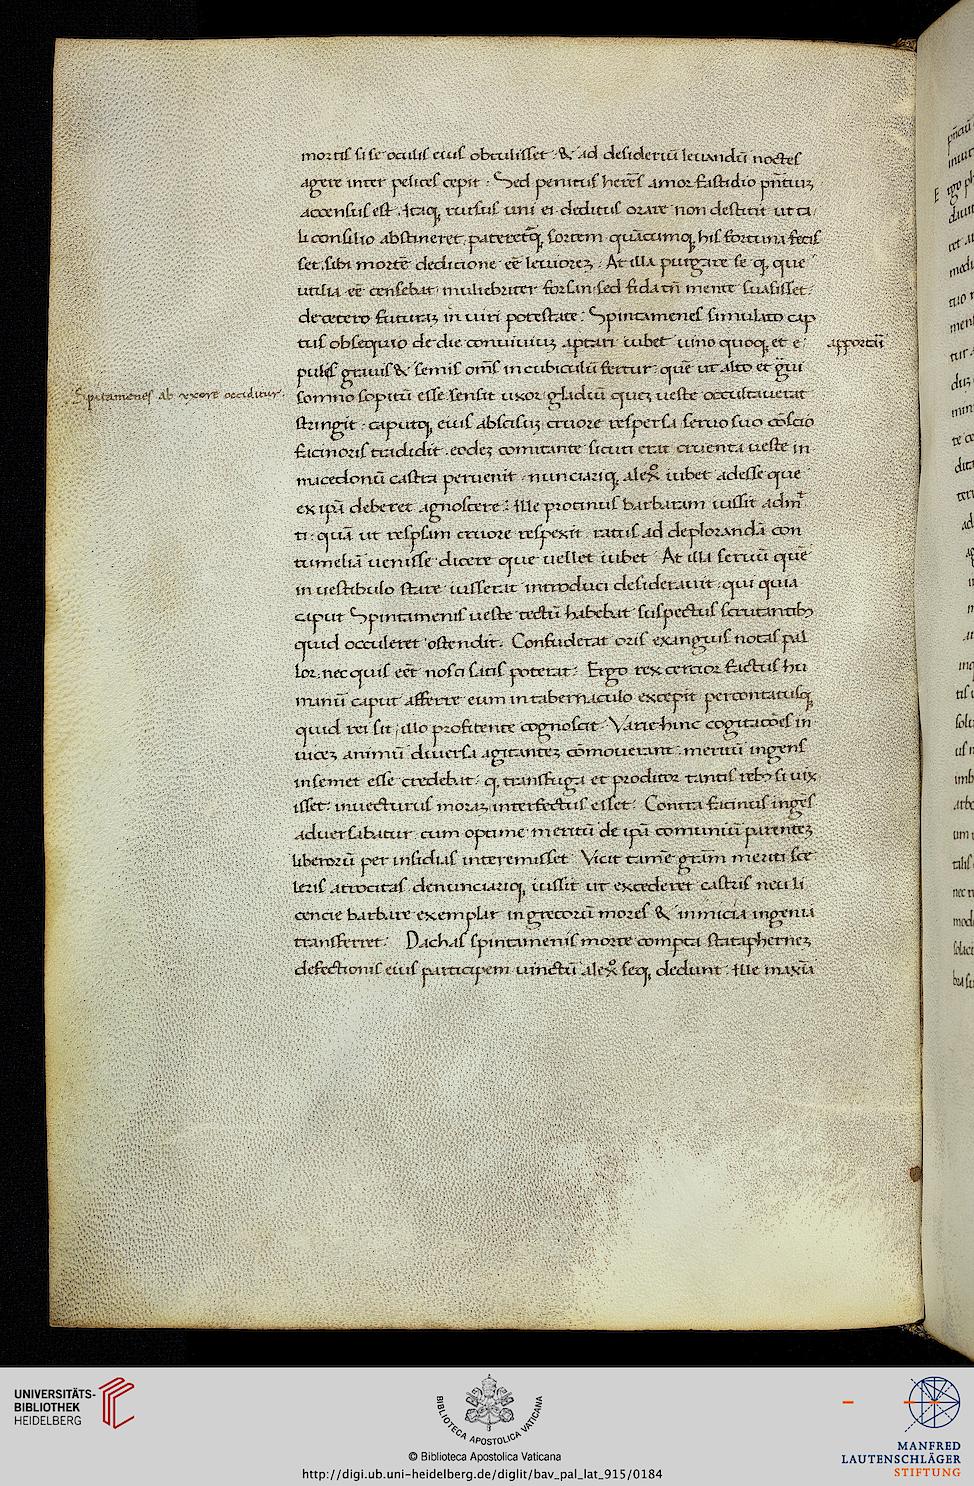 mortis si se oculis eius obtulisset · & ad desideriū leuandū noctes
agere inter pelices cepit · Sed penitus herēs amor fastidio pn̄tiuȝ
accensus est · Itaqȝ rursus uni ei deditus orare non destitit ut ta
li consilio abstineret · pateretqȝ sortem quācumqȝ his fortuna fecis
set · sibi mortē deditione eē leuiorez · At illa purgare se qȝ que
utilia eē censebat · muliebriter forsan sed fida tn̄ mente suasisset ·
de cetero futuraȝ in uiri potestate · Spintamenes simulato cap
tus obsequio de die conuiuiuȝ aptari iubet uino quoqȝ et e
apportari
pulis grauis & semis om̄s in cubiculū fertur · quē ut alto et gui
Spitamenes ab uxore occiditur ·
somno sopitū esse sensit uxor gladiū queȝ ueste occultauerat
stringit · caputqȝ eius abscisuȝ cruore respersa seruo suo cōscio
facinoris tradidit · eodeȝ comitante sicuti erat cruenta ueste in
macedonū castra peruenit · nunciariqȝ alex̊ iubet adesse que
ex ipā deberet agnoscere · Ille protinus barbaram iussit admi
ti · quā ut respsam cruore respexit · ratus ad deplorandā con
tumeliā uenisse dicere que uellet iubet · At illa seruū quē
in uestibulo stare iusserat introduci desiderauit · qui quia
caput Spintamenis ueste tectū habebat suspectus scrutantibȝ
quid occuleret ostendit · Confuderat oris exanguis notas pal
lor · nec quis eēt nosci satis poterat · Ergo rex certior factus hu
manū caput afferre eum in tabernaculo excepit percontatusqȝ
quid rei sit · illo profitente cognoscit · Varie hinc cogitatōes in
uiceȝ animū diuersa agitanteȝ cōmouerant · meritū ingens
in semet esse credebat · qȝ transfuga et proditor tantis rebȝ si uix
isset · iniecturus moraȝ interfectus esset · Contra facinus ingēs
aduersabatur cum optime meritū de ipā comuniū parenteȝ
liberorū per insidias interemisset · Vicit tamē grām meriti sce
leris atrocitas denunciariqȝ iussit ut excederet castris neu li
cencie barbare exemplar in grecorū mores & inmicia ingenia
transferret · Dachas spintamenis morte compta stataphernez
defectionis eius participem uinctū alex̊ seqȝ dedunt · Ille maxīa
UNIVERSITÄTS-
BIBLIOTHEK
HEIDELBERG
BIBLIOTECA APOSTOLICA VATICANA
© Biblioteca Apostolica Vaticana
http://digi.ub.uni-heidelberg.de/diglit/bav_pal_lat_915/0184
MANFRED
LAUTENSCHLÄGER
STIFTUNG